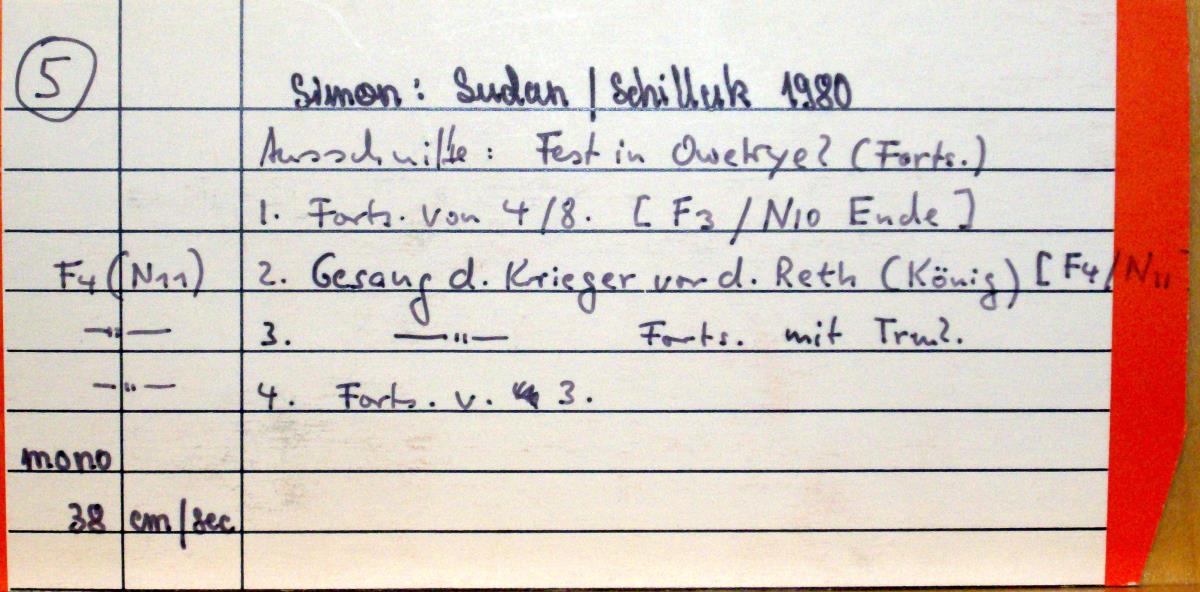 5
Simon: Sudan / Schilluk 1980
Ausschnitte: Fest in (Forts.)
1. Forts. von 4/8. [F3/N10 Ende]
F4 (N11) 2. Gesang d. Krieger vor d. Reth (König) [F4/N11]
—"— 3. —"— Forts. mit
—"— 4. Forts. v. 3.
mono
38 cm/sec